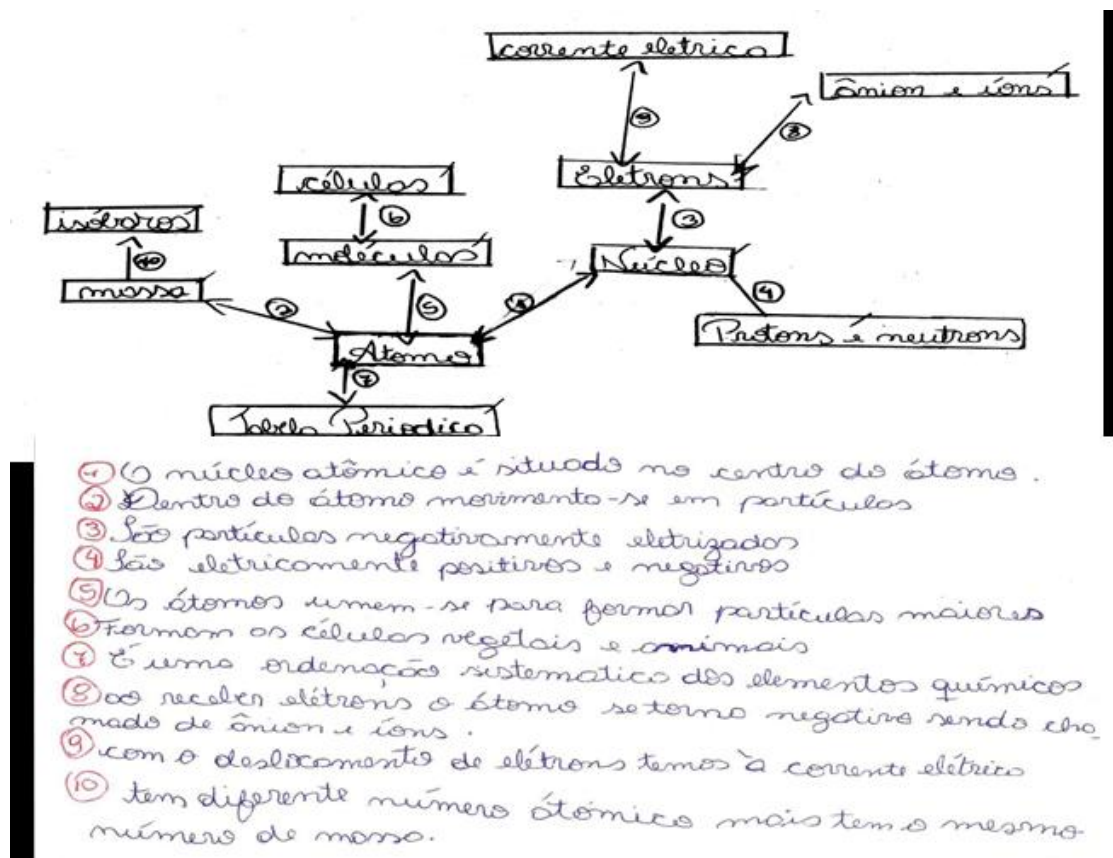 corrente eletrica
ânion e íons
Eletrons
células
isóbaros
moléculas
Núcleo
massa
Protons e neutrons
Átomo
Tabela Periodica
9
8
6
3
10
4
2
5
1
7
1 O núcleo atômico é situado no centro do átomo.
2 Dentro do átomo movimenta-se em partículas
3 São partículas negativamente eletrizadas
4 São eletricamente positivos e negativos
5 Os átomos umem-se para formar partículas maiores
6 Formam as células vegetais e animais
7 É uma ordenação sistematica dos elementos químicos
8 ao receber elétrons o átomo se torna negativo sendo cha
mado de ânion e íons.
9 com o deslocamento de elétrons temos à corrente elétrica
10 tem diferente número átómico mais tem o mesmo
número de massa.